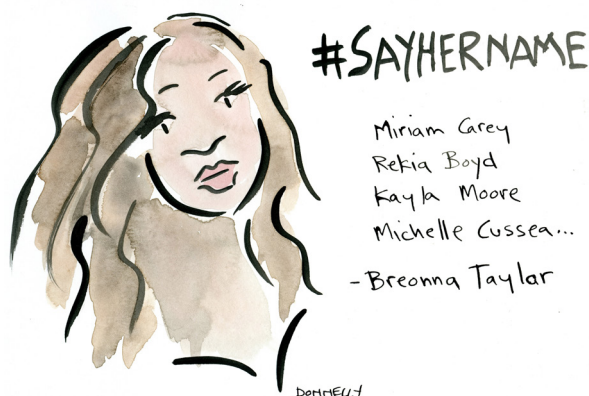 #SAYHERNAME
Miriam Carey
Rekia Boyd
Kayla Moore
Michelle Cussea...
-Breonna Taylar
DONNELLY